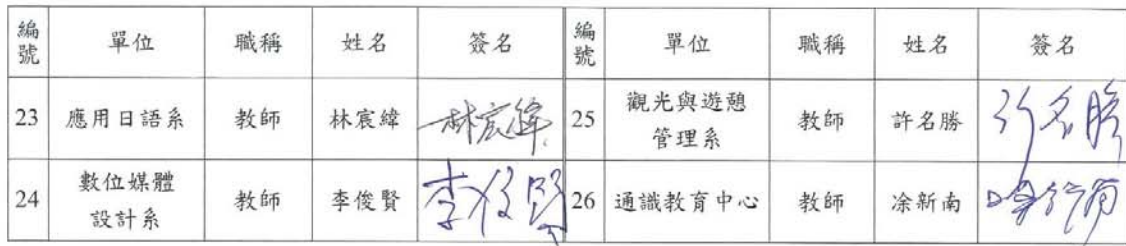 編號 單位 職稱 姓名 簽名 編號 單位 職稱 姓名 簽名
23 應用日語系 教師 林宸緯 林宸緯 25 觀光與遊憩管理系 教師 許名勝 許名勝
24 數位媒體設計系 教師 李俊賢 李俊賢 26 通識教育中心 教師 凃新南